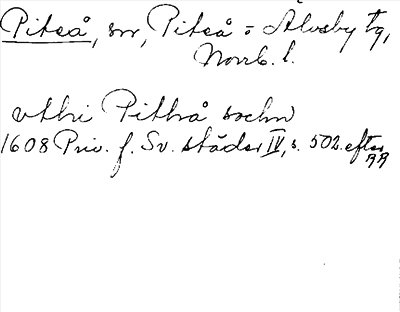 Piteå, sn, Piteå o Älvsby tg,
Norrb. l.
vthi Pithå sochn
1608 Priv. f. Sv. städer IV, s. 502. efter
RA